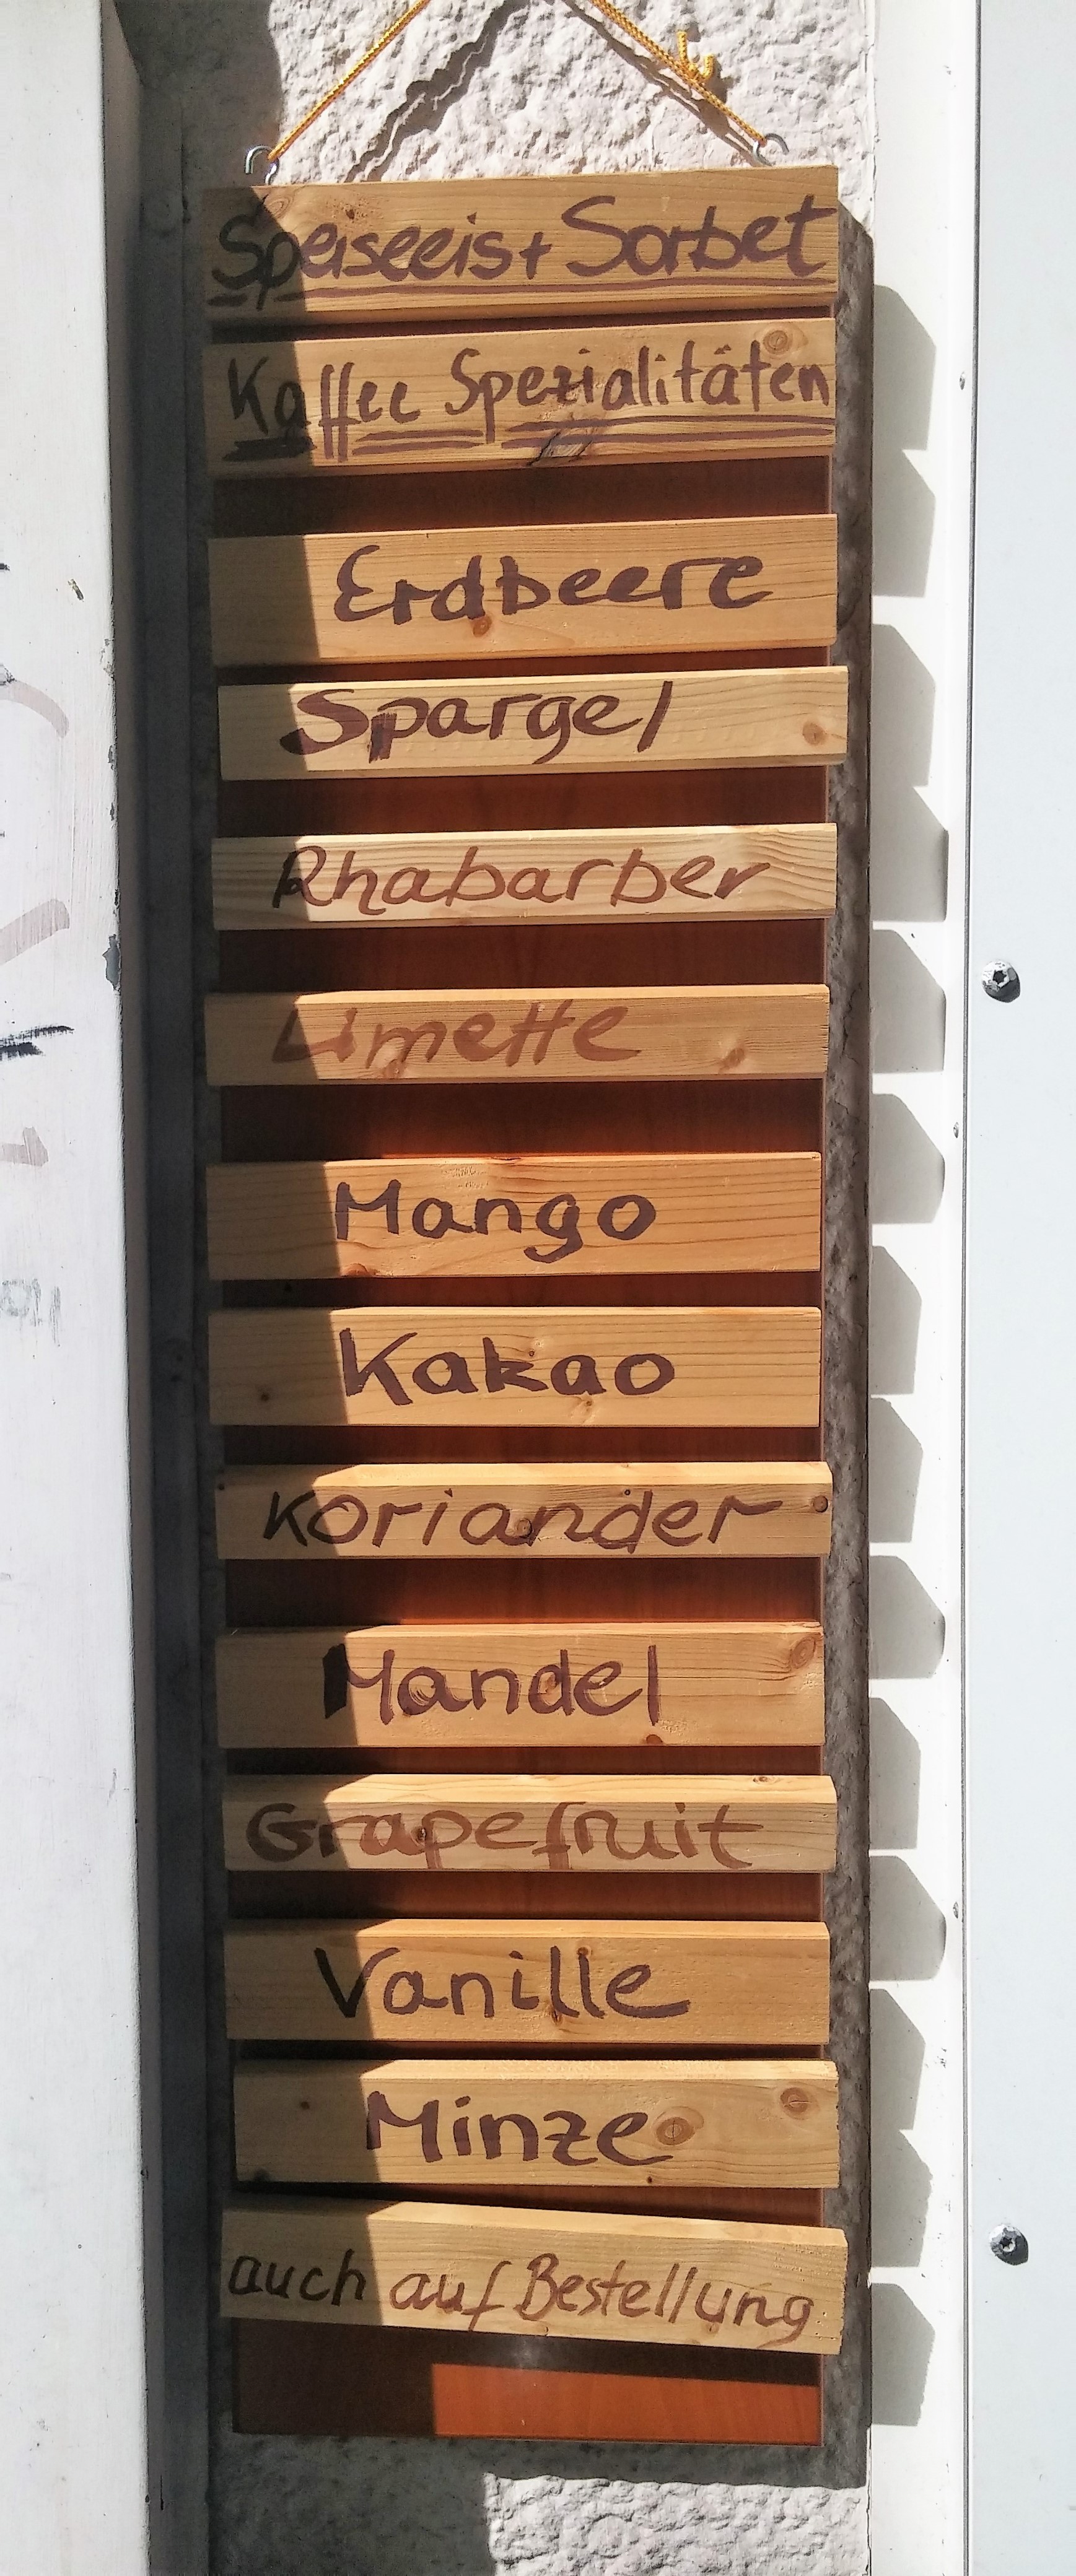 Speiseeis + Sorbet
Kaffee Spezialitäten
Erdbeere
Spargel
Rhabarber
Limette
Mango
Kakao
Koriander
Mandel
Grapefruit
Vanille
Minze
auch auf Bestellung